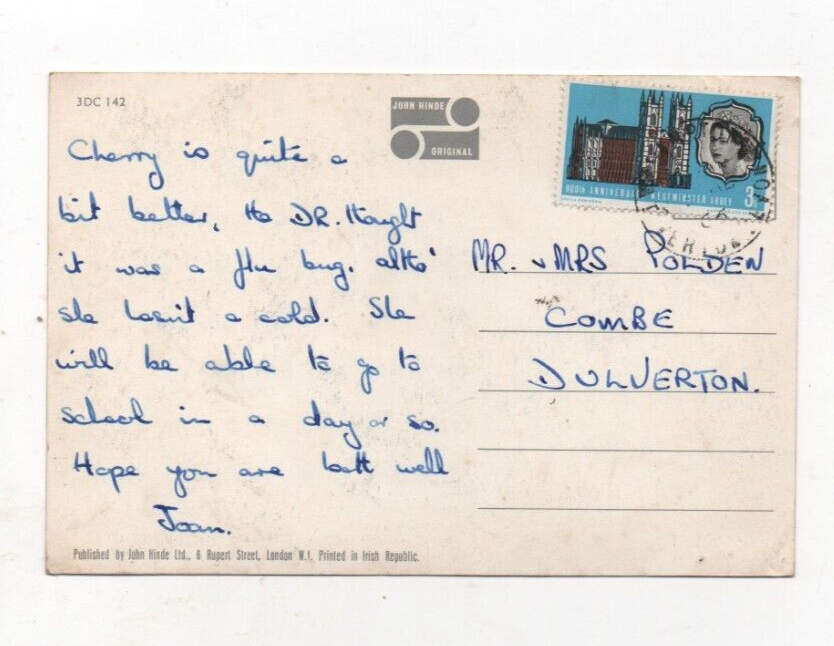 3DC 142
JOHN HINDE
ORIGINAL
Cherry is quite a
bit better, the DR. thought
it was a flu bug. altho'
she hasn't a cold. She
will be able to go to
school in a day or so.
Hope you are both well
Joan.
Published by John Hinde Ltd., 6 Rupert Street, London W.1. Printed in Irish Republic.
900th ANNIVERSARY WESTMINSTER ABBEY
3D
MR. & MRS POLDEN
COMBE
DULVERTON.